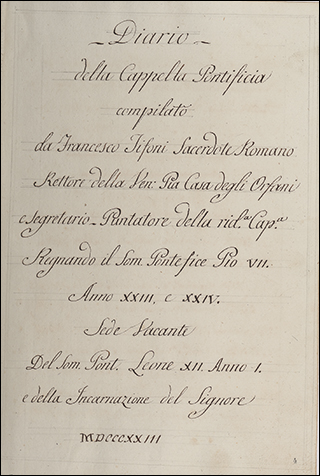 Diario
della Cappella Pontificia
compilato
da Francesco Tifoni Sacerdote Romano
Rettore della Ven: Pia Casa degli Orfani
e Segretario Puntatore della rid.ª Cap.ª
Regnando il Som. Pontefice Pio VII.
Anno XXIII, e XXIV.
Sede Vacante
Del Som. Pont. Leone XII. Anno I.
e della Incarnazione del Signore
MDCCCXXIII